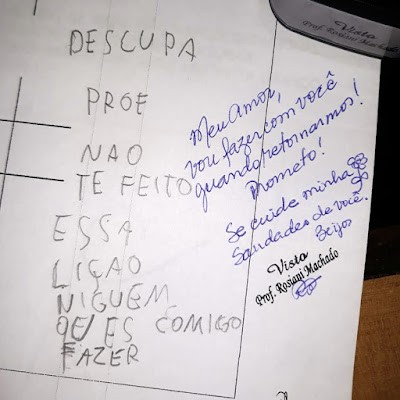 DESCUPA
PROE
NAO
TE FEITO
ESSA
LIÇAO
NIGUEM
QU ES COMIGO
FAZER
Meu Amor,
vou fazer com você
quando retornarmos!
Prometo!
Se cuide minha
Saudades de você.
Beijos
Visto
Prof. Rosiani Machado
Visto
Prof. Rosiani Machado